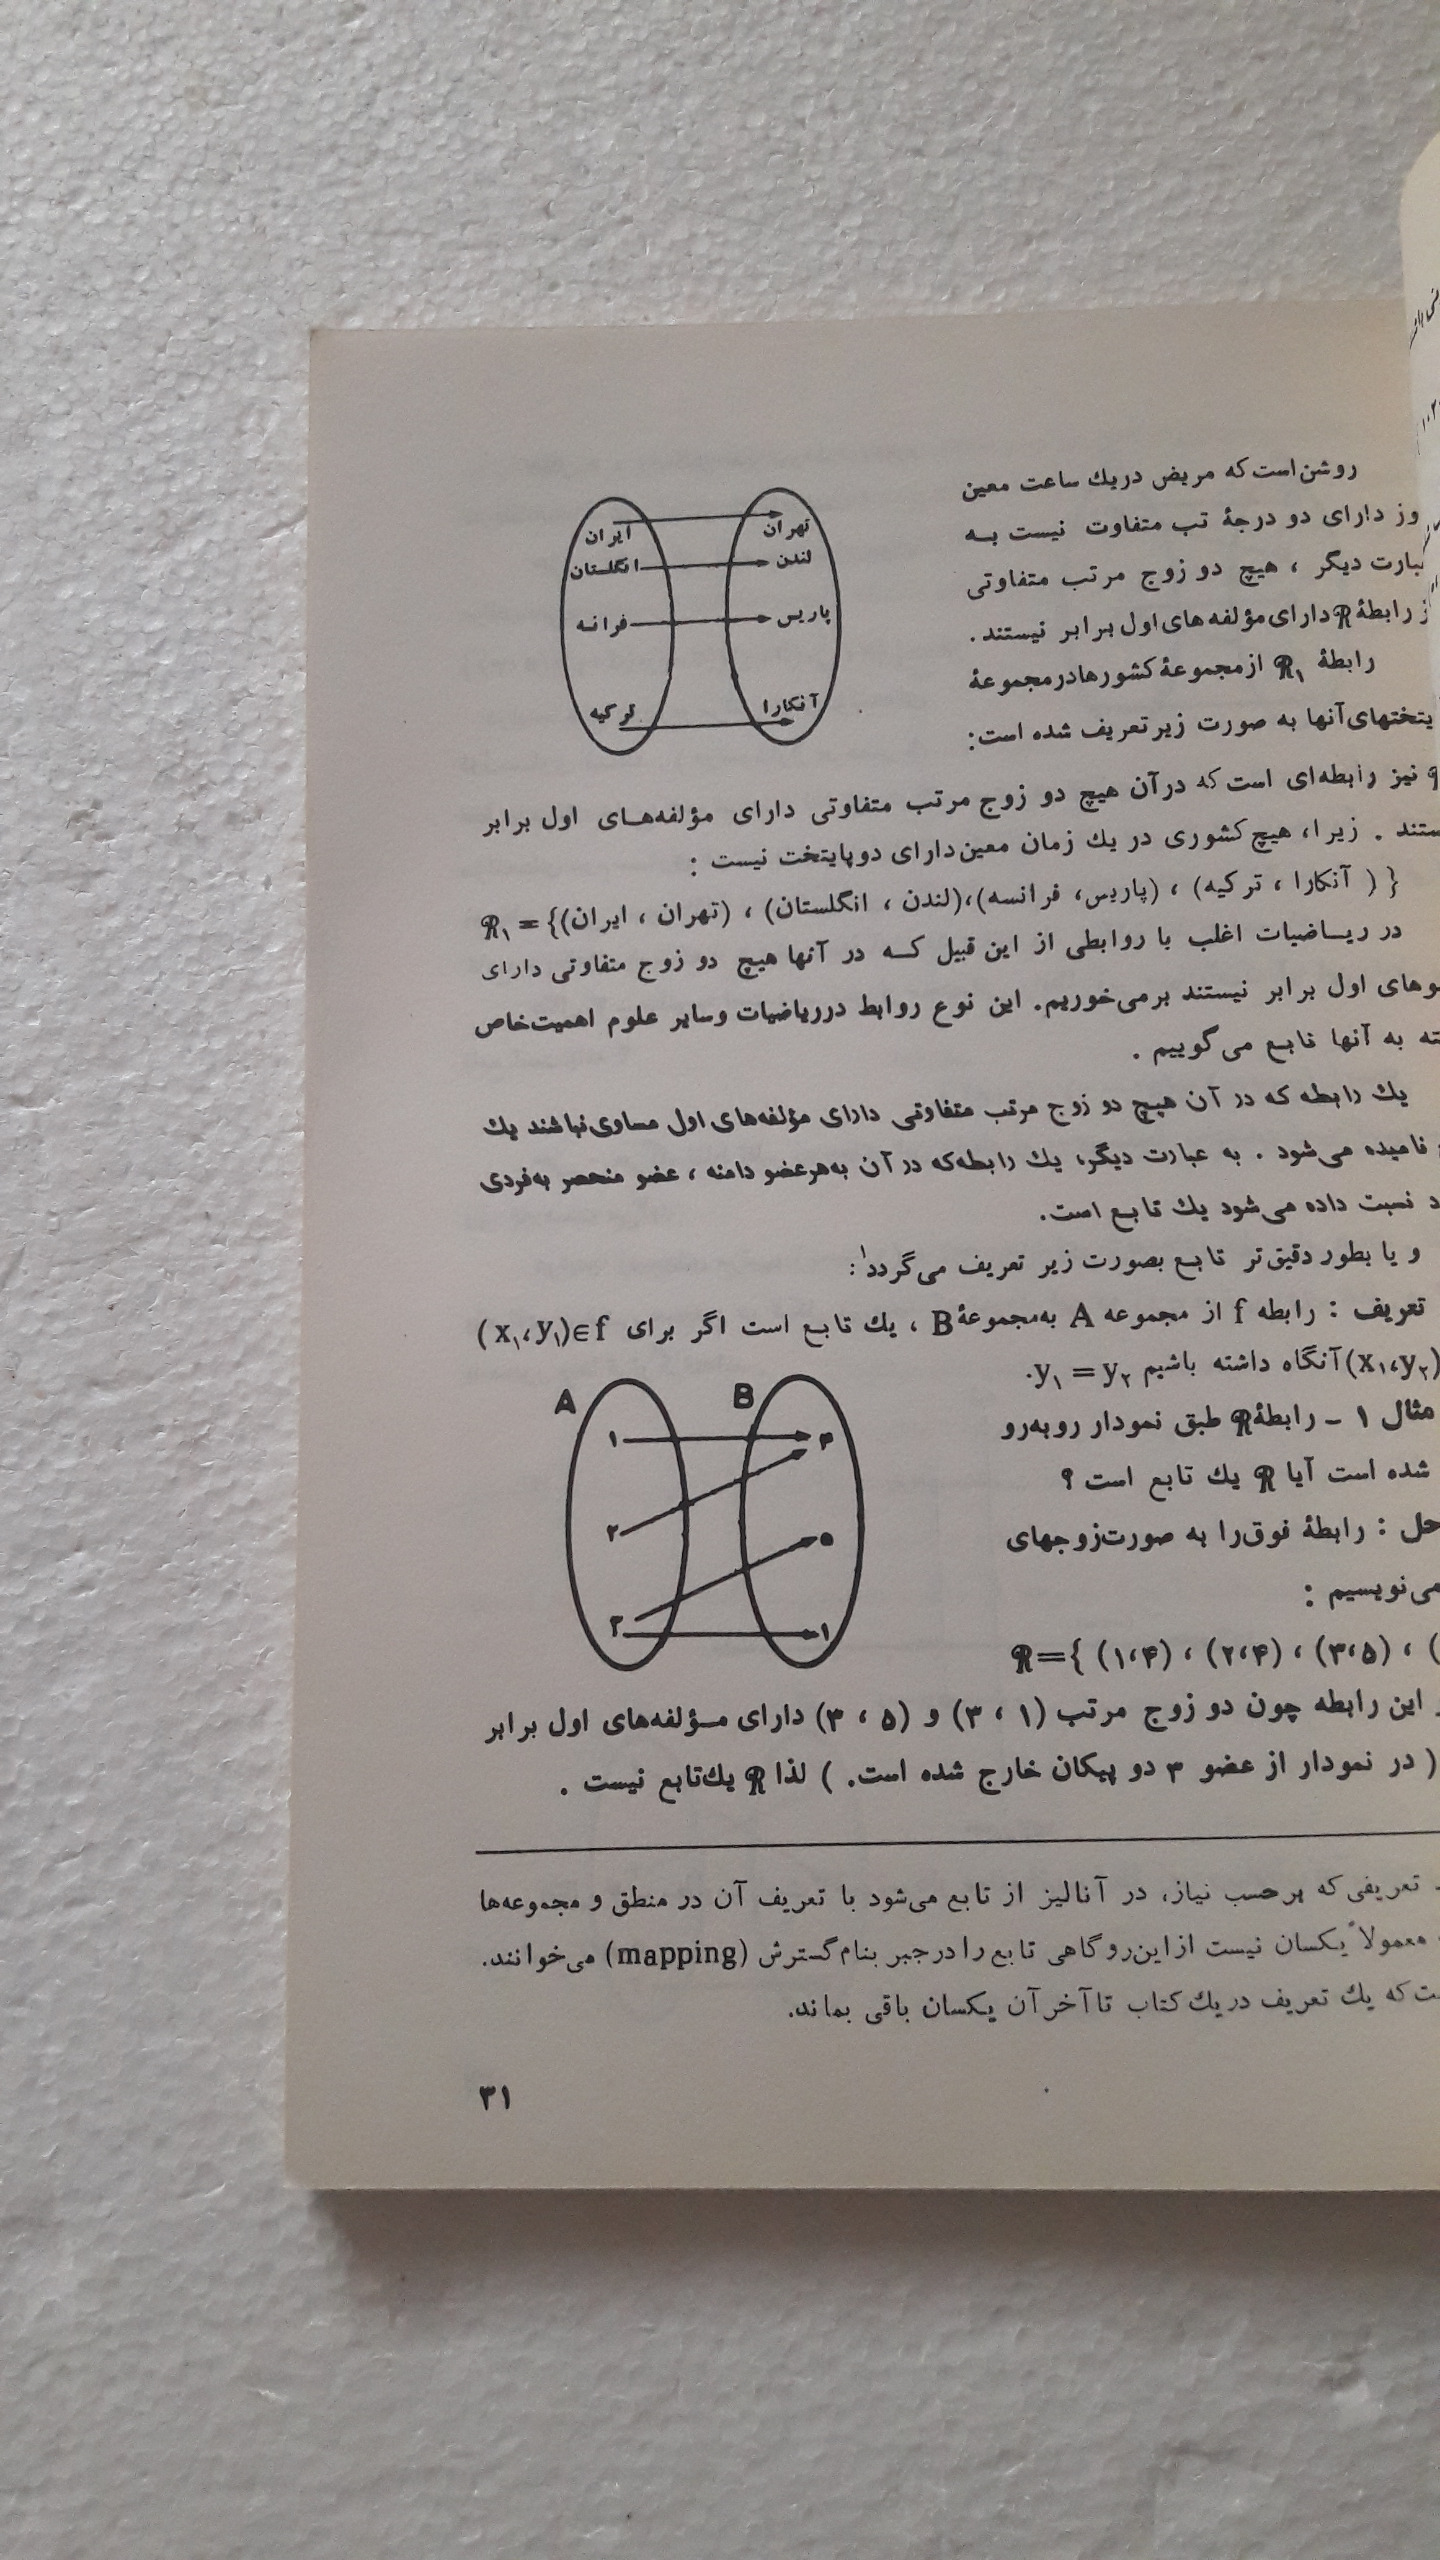 روشن است که مریض در یک ساعت معین
دارای دو درجهٔ تب متفاوت نیست به
دیگر ، هیچ دو زوج مرتب متفاوتی
رابطهٔ R دارای مؤلفه های اول برابر نیستند.
رابطهٔ R۱ از مجموعهٔ کشورها در مجموعهٔ
آنها به صورت زیر تعریف شده است:
ایران
انگلستان
فرانسه
ترکیه
تهران
لندن
پاریس
آنکارا
نیز رابطه‌ای است که در آن هیچ دو زوج مرتب متفاوتی دارای مؤلفه‌های اول برابر
زیرا، هیچ کشوری در یک زمان معین دارای دو پایتخت نیست :
R۱ = {(تهران ، ایران) ، (لندن ، انگلستان)،(پاریس، فرانسه) ، (آنکارا ، ترکیه ) }
در ریاضیات اغلب با روابطی از این قبیل که در آنها هیچ دو زوج متفاوتی دارای
اول برابر نیستند برمی‌خوریم. این نوع روابط در ریاضیات و سایر علوم اهمیت خاص
به آنها تابع می‌گوییم .
یک رابطه که در آن هیچ دو زوج مرتب متفاوتی دارای مؤلفه‌های اول مساوی نباشند یک
نامیده می‌شود . به عبارت دیگر، یک رابطه که در آن به هر عضو دامنه ، عضو منحصر به فردی
نسبت داده می‌شود یک تابع است.
و یا بطور دقیق‌تر تابع بصورت زیر تعریف می‌گردد۱:
تعریف : رابطه f از مجموعه A به مجموعهٔ B ، یک تابع است اگر برای (x۱،y۱)∈f
(x۱،y۲) آنگاه داشته باشیم y۱ = y۲.
مثال ۱ – رابطهٔ R طبق نمودار روبه‌رو
شده است آیا R یک تابع است ؟
حل : رابطهٔ فوق را به صورت زوجهای
می‌نویسیم :
R={ (۱،۴) ، (۲،۴) ، (۳،۵) ، (
A
B
۱
۲
۳
۴
۵
۱
این رابطه چون دو زوج مرتب (۳ ، ۱) و (۳ ، ۵) دارای مؤلفه‌های اول برابر
( در نمودار از عضو ۳ دو پیکان خارج شده است. ) لذا R یک تابع نیست .
تعریفی که برحسب نیاز، در آنالیز از تابع می‌شود با تعریف آن در منطق و مجموعه‌ها
معمولاً یکسان نیست از این‌رو گاهی تابع را در جبر بنام گسترش (mapping) می‌خوانند.
که یک تعریف در یک کتاب تا آخر آن یکسان باقی بماند.
۳۱